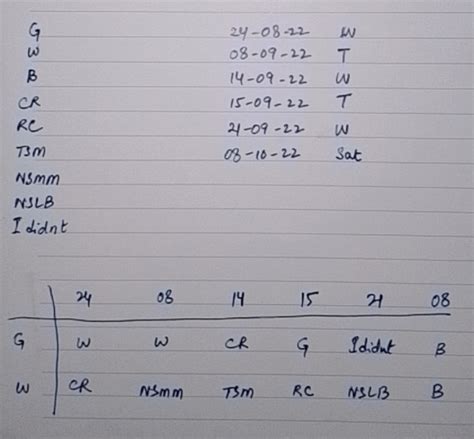 G 24-08-22 W
W 08-09-22 T
B 14-09-22 W
CR 15-09-22 T
RC 21-09-22 W
TSM 08-10-22 Sat
NSMM
NSLB
I didnt
24 08 14 15 21 08
G W W CR G I didnt B
W CR NSMM TSM RC NSLB B